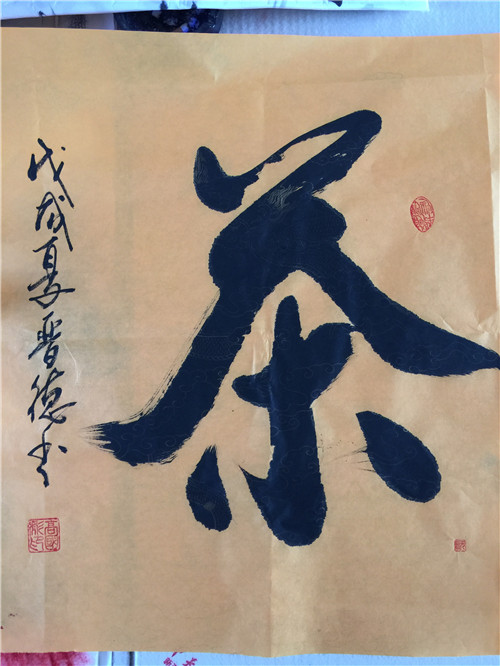 茶
戊戌夏晋德书